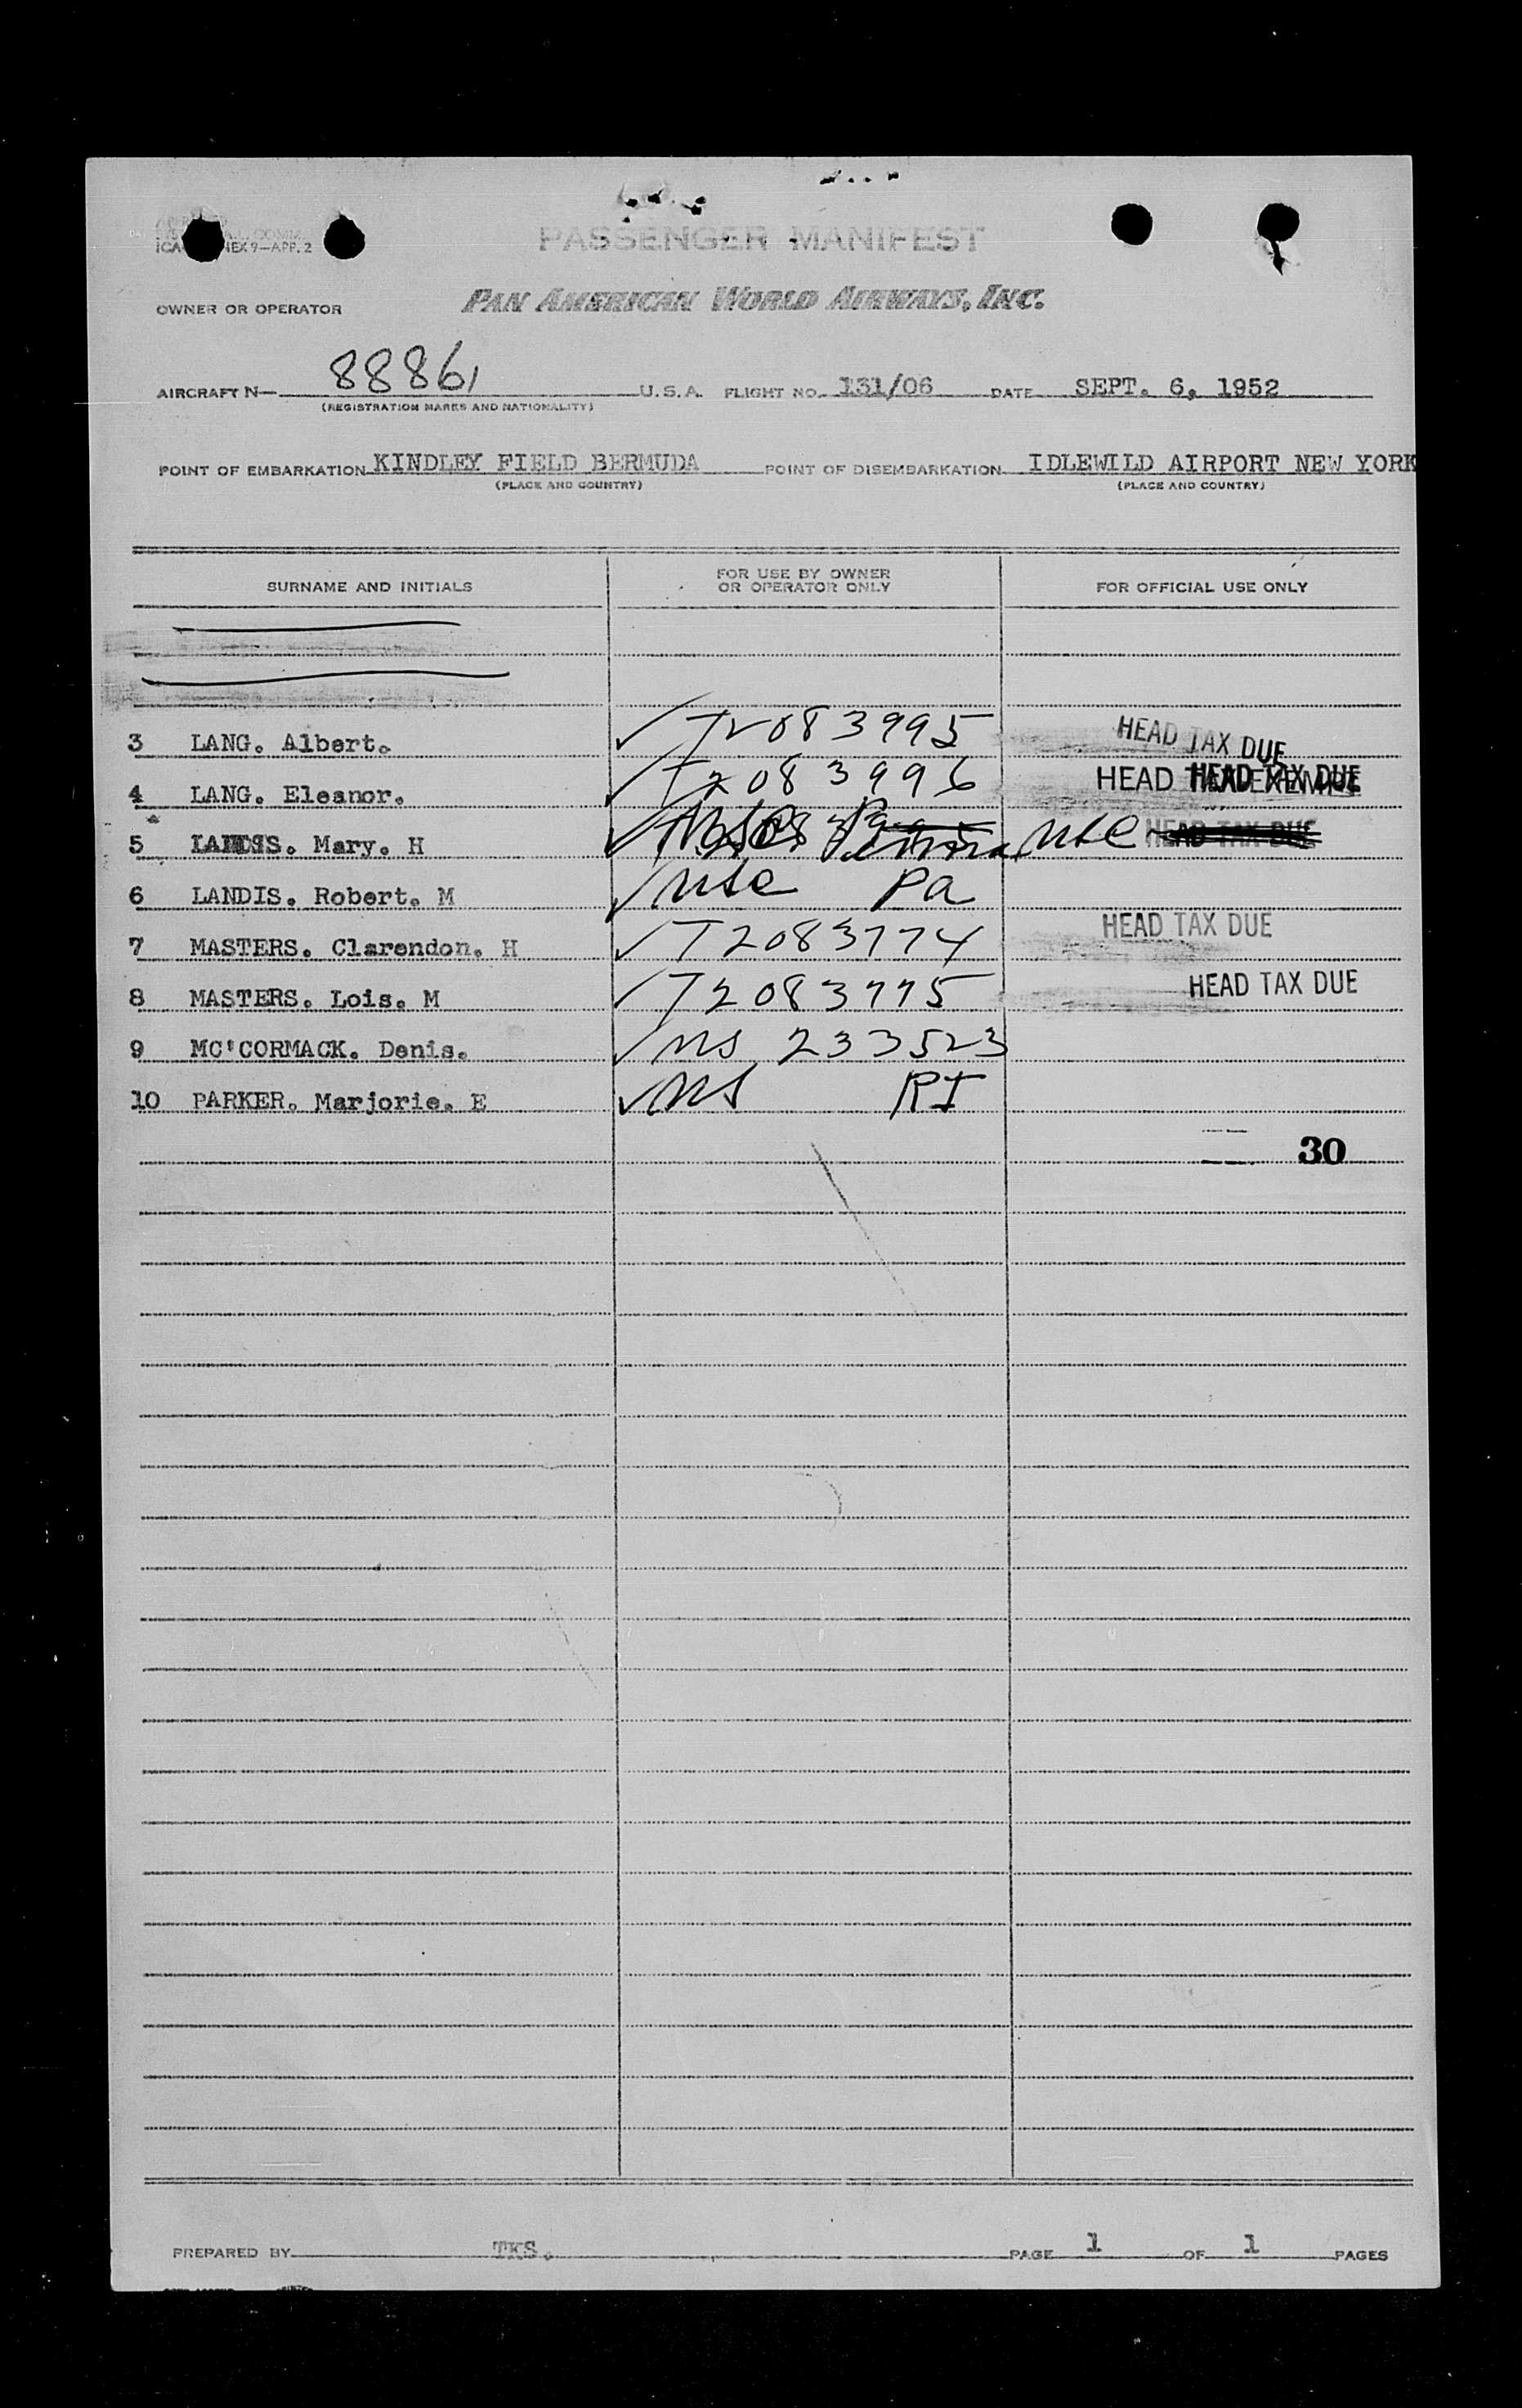 PASSENGER MANIFEST
NEX 9—APP. 2
OWNER OR OPERATOR PAN AMERICAN WORLD AIRWAYS, INC.
AIRCRAFT N— 88861 U.S.A. FLIGHT NO. 131/06 DATE SEPT. 6, 1952
(REGISTRATION MARKS AND NATIONALITY)
POINT OF EMBARKATION KINDLEY FIELD BERMUDA POINT OF DISEMBARKATION IDLEWILD AIRPORT NEW YORK
(PLACE AND COUNTRY) (PLACE AND COUNTRY)
SURNAME AND INITIALS FOR USE BY OWNER OR OPERATOR ONLY FOR OFFICIAL USE ONLY
3 LANG. Albert. ✓ T2083995 HEAD TAX DUE
4 LANG. Eleanor. ✓ T2083996 HEAD HEAD TAX DUE
5 LANDIS. Mary. H ✓ HEAD TAX DUE
6 LANDIS. Robert. M ✓ Pa
7 MASTERS. Clarendon. H ✓ T2083774 HEAD TAX DUE
8 MASTERS. Lois. M ✓ T2083775 HEAD TAX DUE
9 MC'CORMACK. Denis. ✓ NS 233523
10 PARKER. Marjorie. E ✓ NS RI
30
PREPARED BY TKS. PAGE 1 OF 1 PAGES